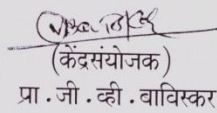 (केंद्रसंयोजक)
प्रा . जी . व्ही . बाविस्कर